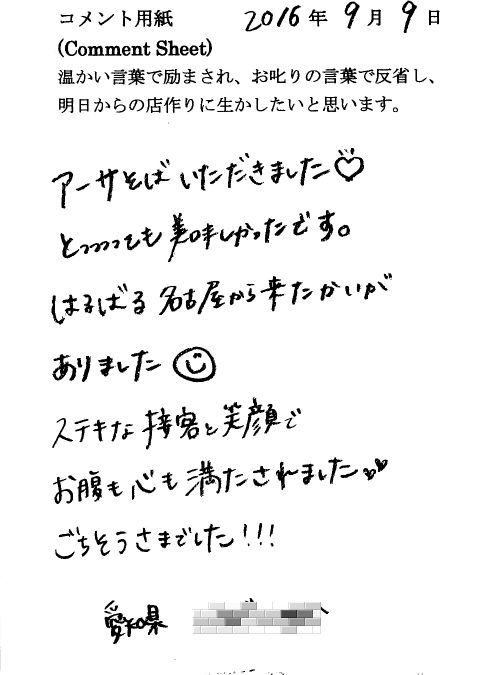 コメント用紙 2016年 9月 9日
(Comment Sheet)
温かい言葉で励まされ、お叱りの言葉で反省し、
明日からの店作りに生かしたいと思います。
アーサそば いただきました♡
とっっっても 美味しかったです。
はるばる 名古屋から来たかいが
ありました☺
ステキな 接客と笑顔で
お腹も心も満たされました♡♡
ごちそうさまでした!!!
愛知県